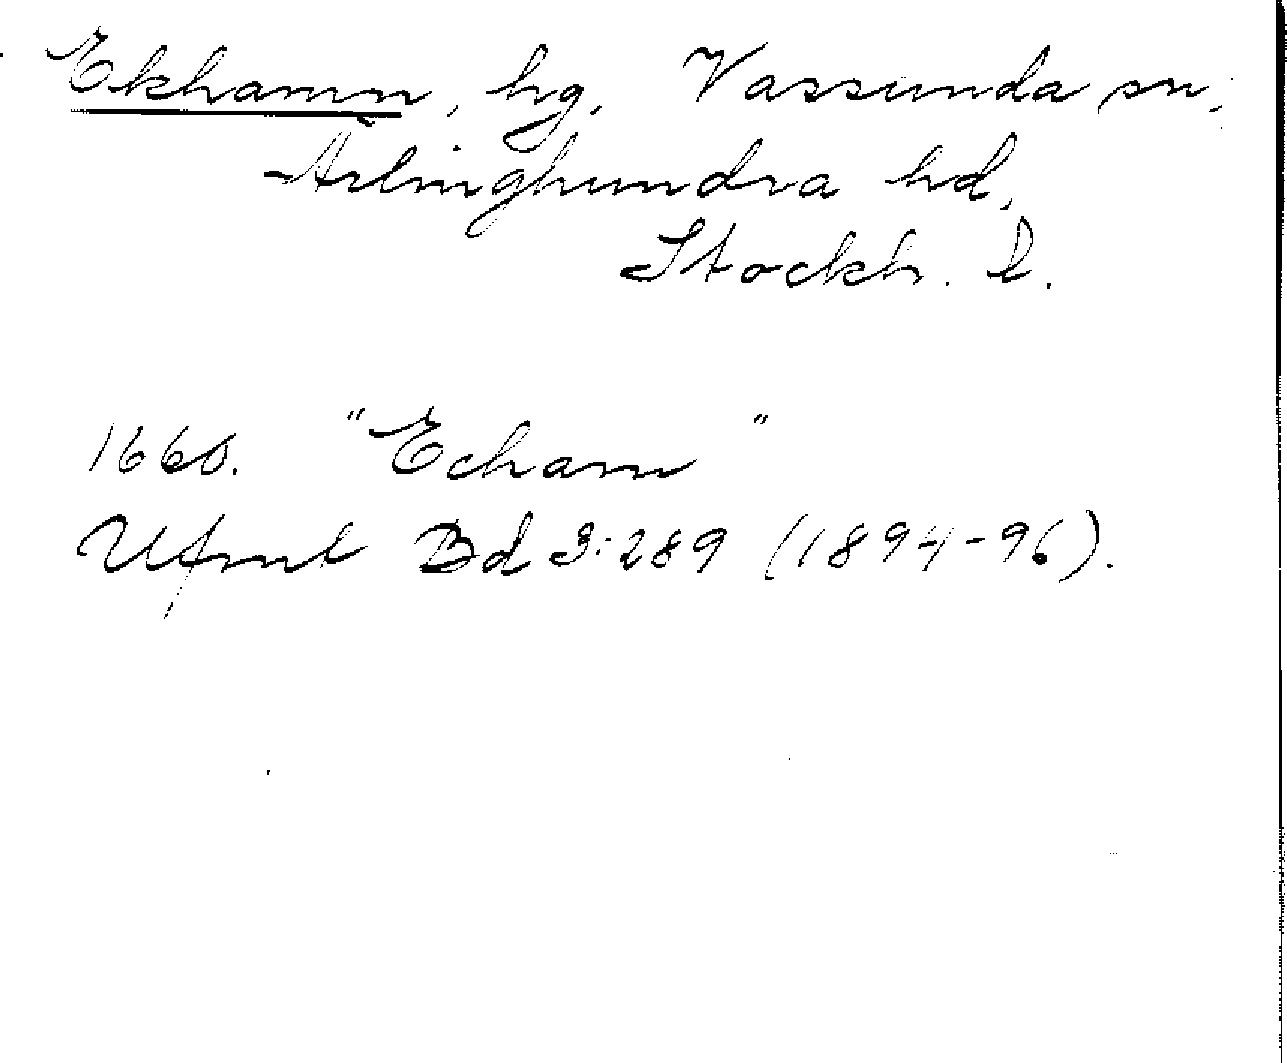 Ekhamn, hg, Vassunda sn,
Ärlinghundra hd,
Stockh. l.
1660. "Echam"
Ufmt Bd 3:289 (1894-96).